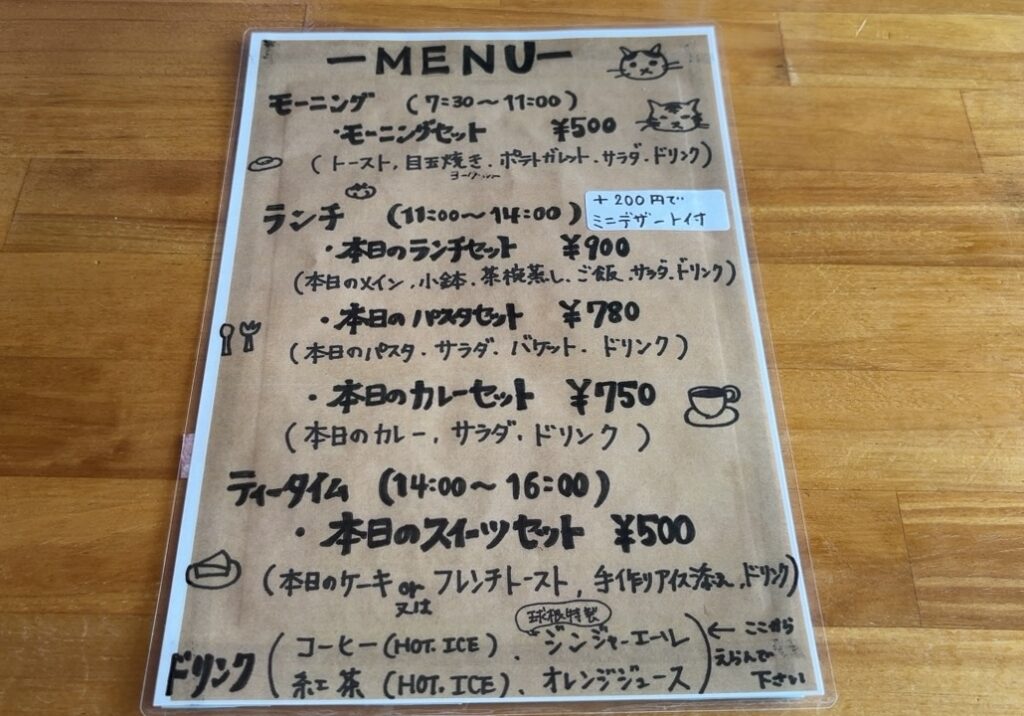 ーMENUー
モーニング (7:30～11:00)
・モーニングセット ¥500
(トースト,目玉焼き.ポテトガレット.サラダ.ドリンク)
ランチ (11:00～14:00)
+200円で
ミニデザート付
・本日のランチセット ¥900
(本日のメイン.小鉢.茶椀蒸し.ご飯.サラダ.ドリンク)
・本日のパスタセット ¥780
(本日のパスタ.サラダ.バケット.ドリンク)
・本日のカレーセット ¥750
(本日のカレー,サラダ.ドリンク)
ティータイム (14:00～16:00)
・本日のスイーツセット ¥500
(本日のケーキorフレンチトースト,手作りアイス添え.ドリンク)
又は
ドリンク
コーヒー(HOT.ICE)、ジンジャーエール
紅茶(HOT.ICE)、オレンジジュース
←ここから
えらんで
下さい